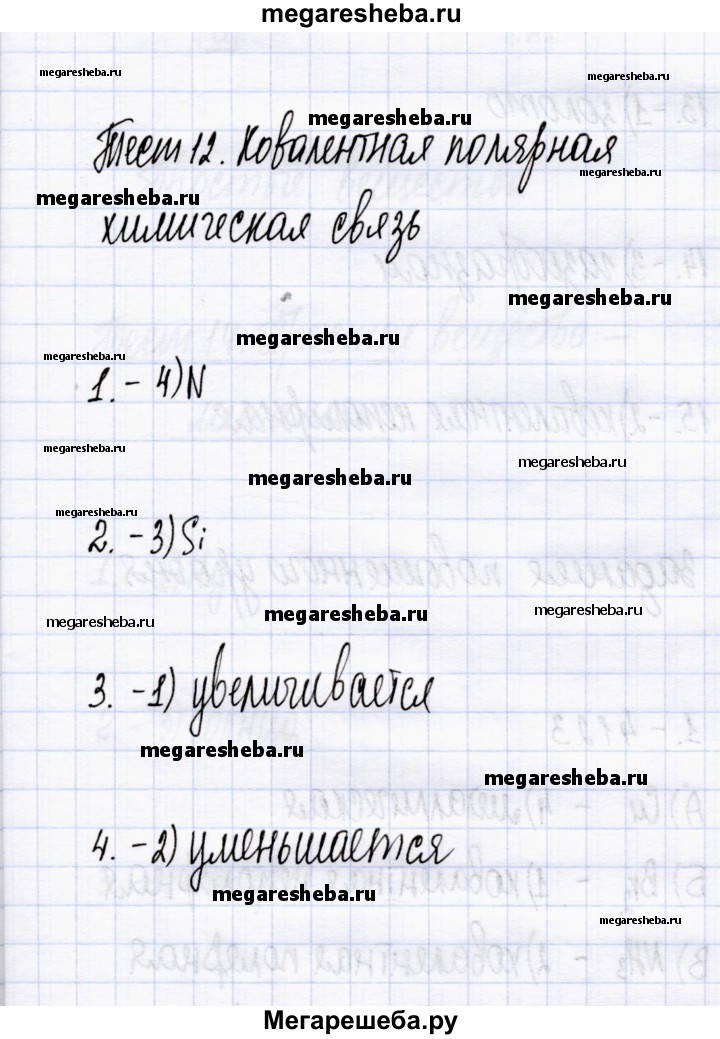 megaresheba.ru
megaresheba.ru
megaresheba.ru
megaresheba.ru
Тест 12. Ковалентная полярная
megaresheba.ru
megaresheba.ru
химическая связь
megaresheba.ru
megaresheba.ru
megaresheba.ru
1. - 4) N
megaresheba.ru
megaresheba.ru
megaresheba.ru
megaresheba.ru
2. - 3) Si
megaresheba.ru
megaresheba.ru
megaresheba.ru
3. - 1) увеличивается
megaresheba.ru
megaresheba.ru
4. - 2) уменьшается
megaresheba.ru
megaresheba.ru
Мегарешеба.ру